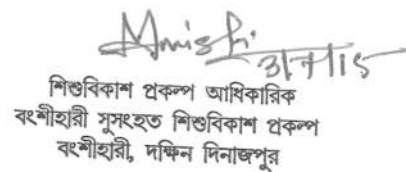 31/7/15
শিশুবিকাশ প্রকল্প আধিকারিক
বংশীহারী সুসংহত শিশুবিকাশ প্রকল্প
বংশীহারী, দক্ষিন দিনাজপুর